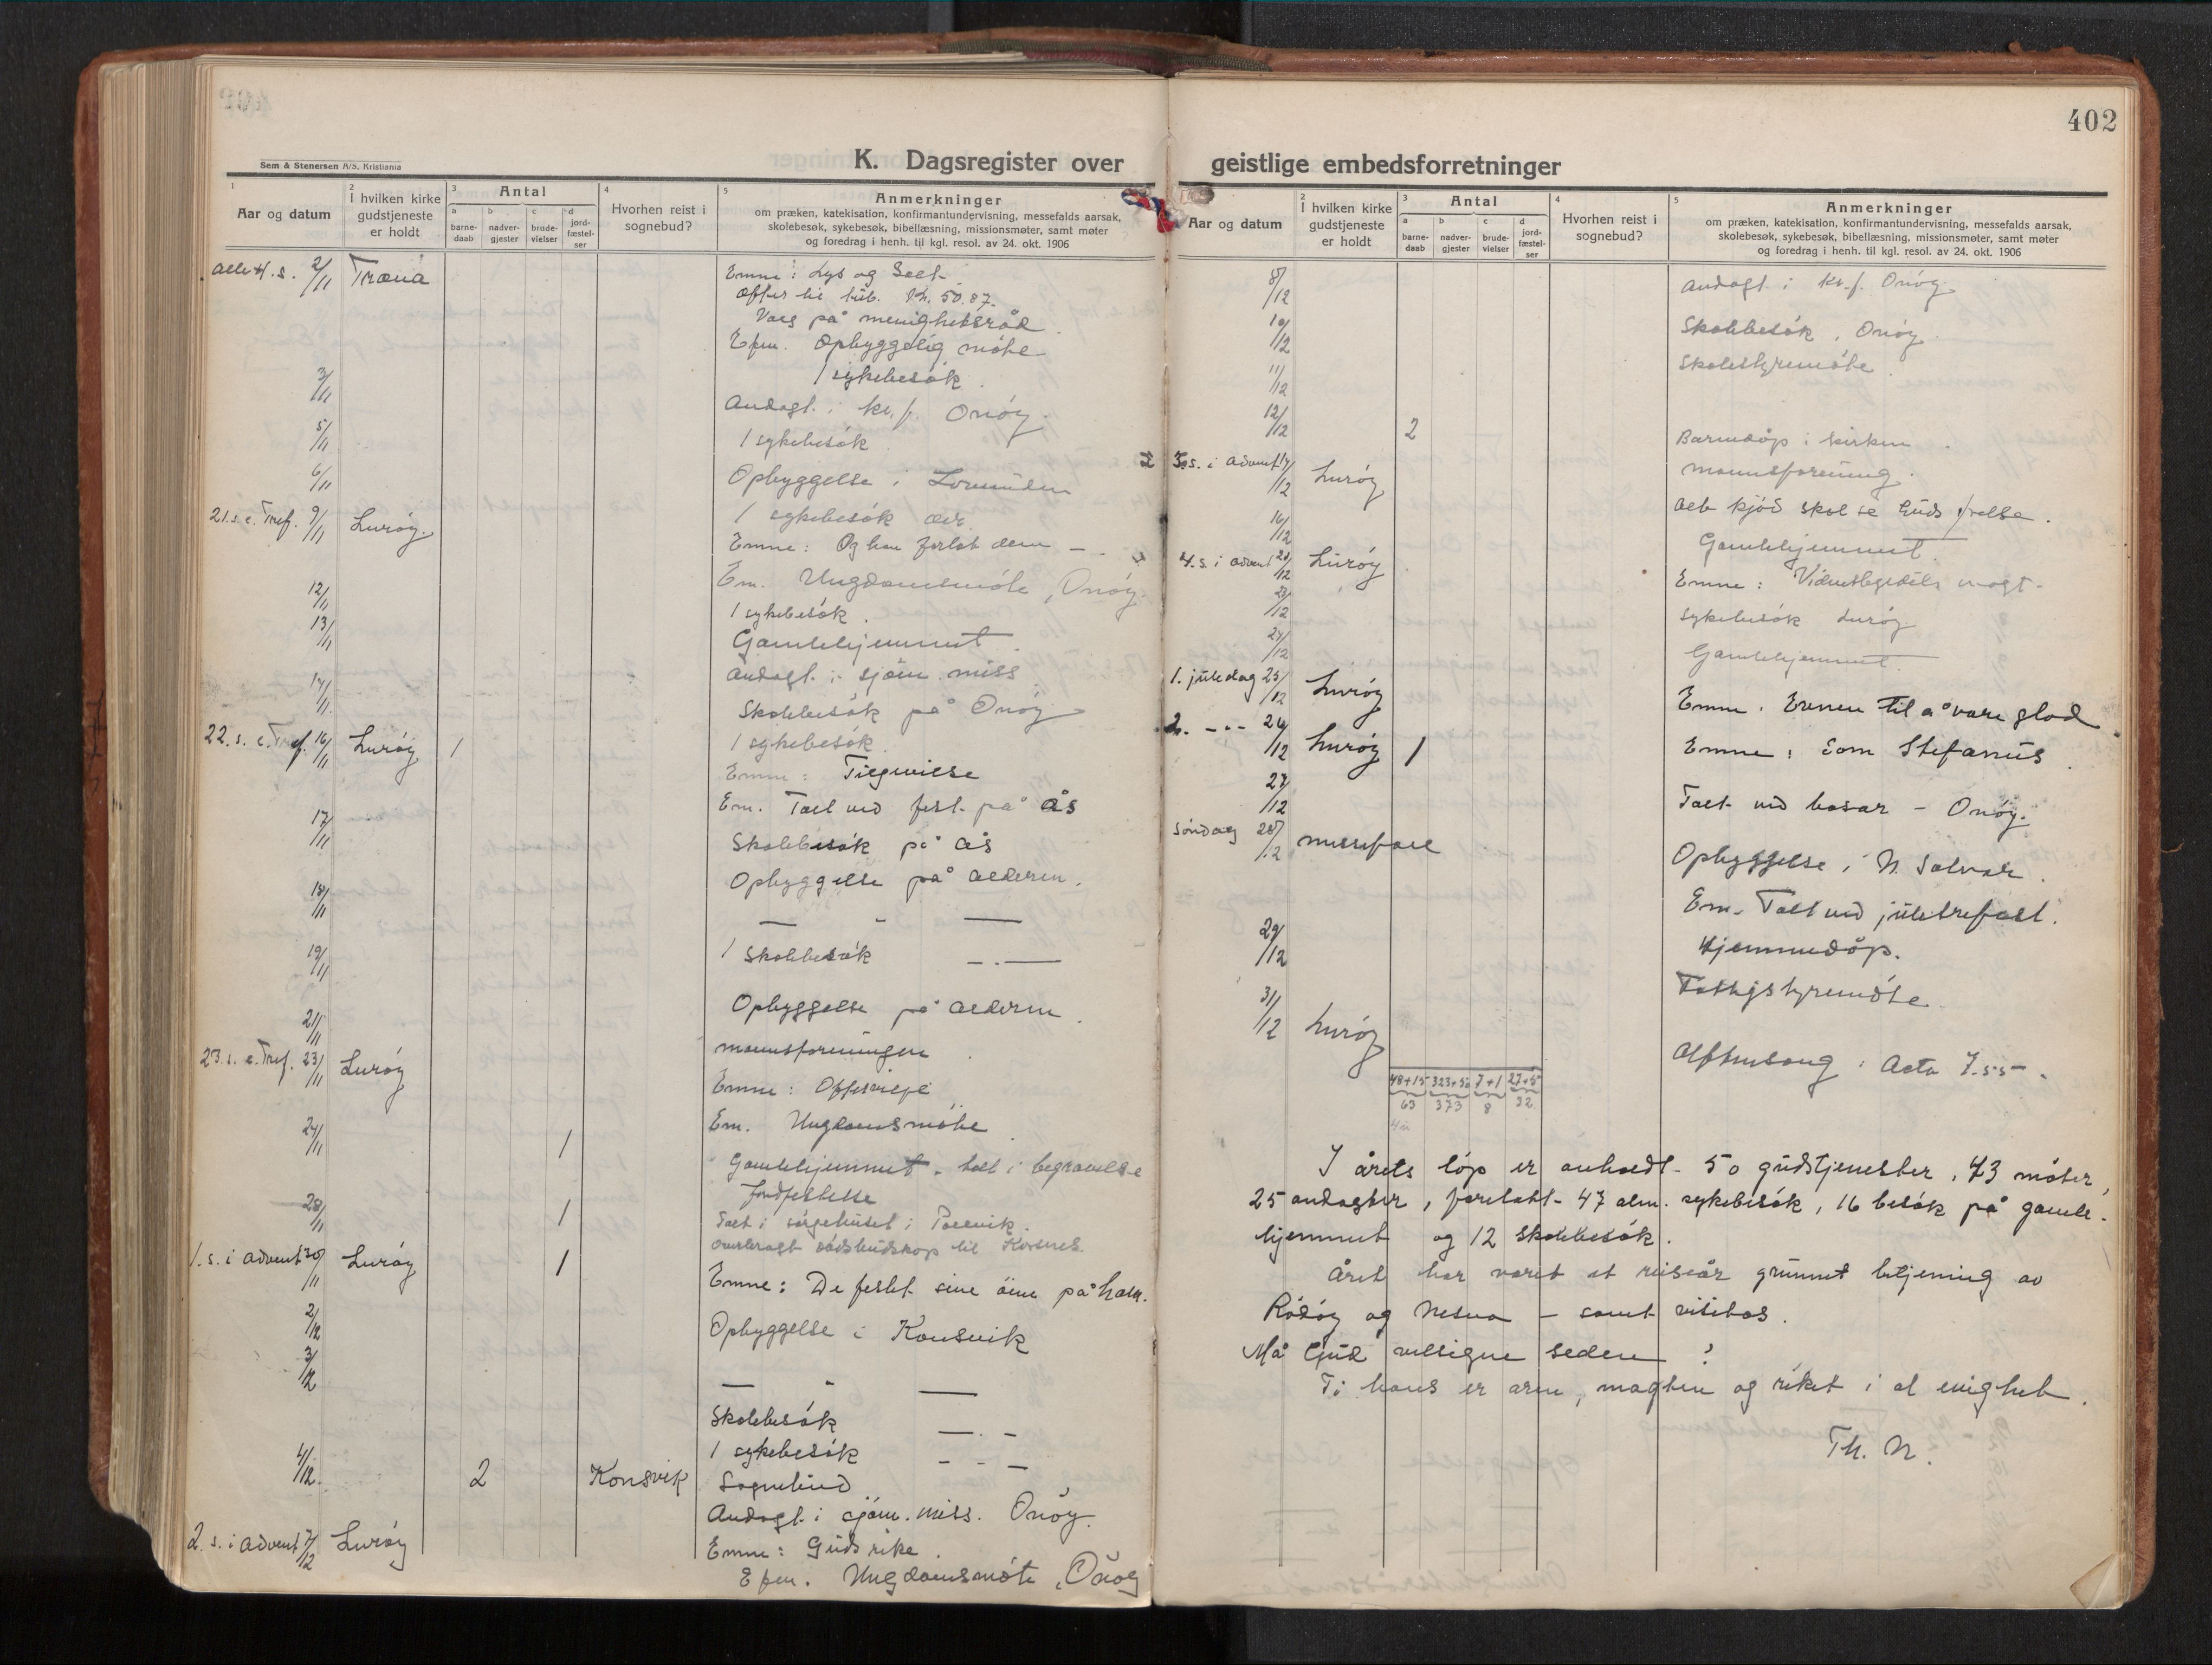 402
Sem & Stenersen A/S, Kristiania
K. Dagsregister over geistlige embedsforretninger
1 Aar og datum
2 I hvilken kirke gudstjeneste er holdt
3 Antal
a barnedaab
b nadvergjester
c brudevielser
d jordfæstelser
4 Hvorhen reist i sognebud?
5 Anmerkninger
om præken, katekisation, konfirmantundervisning, messefalds aarsak,
skolebesøk, sykebesøk, bibellæsning, missionsmøter, samt møter
og foredrag i henh. til kgl. resol. av 24. okt. 1906
Alle H. s. 2/11 Træna Emne: Lys og Salt
Valg på menighetsråd
Efm. Opbyggelig møte
1 sykebesøk.
3/11 Andagt i kv.f. Onøy.
5/11 1 sykebesøk
6/11 Opbyggelse i Lovunden
1 sykebesøk der
21. s. e. Tref. 9/11 Lurøy. Emne: Og han forlot dem —
Em. Ungdomsmøte, Onøy
12/11 1 sykebesøk.
13/11 Gamlehjemmet.
Andagt i sjøm. miss
14/11 Skolebesøk på Onøy
1 sykebesøk.
22. s. e. Tref. 16/11 Lurøy 1 Emne: Tilgivelse
Em. Talt ved fest på Ås
17/11 Skolebesøk på Ås
Opbyggelse på Aldersu.
18/11 — " —
19/11 1 Skolebesøk — . —
Opbyggelse på Aldersu.
21/11 mannsforeningen
23. s. e. Tref. 23/11 Lurøy Emne: Offervilje
Em. Ungdomsmøte.
24/11 1 Gamlehjemmet. talt i begravelse
Jordfestelse
28/11 1 Talt i sørgehuset i
overbragt dødsbudskap til
1. s. i advent 30/11 Lurøy 1 Emne: De festet sine øine på ham.
2/12 Opbyggelse i Konsvik
3/12 — " —
Skolebesøk — . —
1 sykebesøk — . —
4/12 2 Konsvik Sognebud
Andagt i sjøm. miss. Onøy.
2. s. i advent 7/12 Lurøy Emne: Guds rike.
Efm. Ungdomsmøte, Onøy
1 Aar og datum
2 I hvilken kirke gudstjeneste er holdt
3 Antal
a barnedaab
b nadvergjester
c brudevielser
d jordfæstelser
4 Hvorhen reist i sognebud?
5 Anmerkninger
om præken, katekisation, konfirmantundervisning, messefalds aarsak,
skolebesøk, sykebesøk, bibellæsning, missionsmøter, samt møter
og foredrag i henh. til kgl. resol. av 24. okt. 1906
8/12 Andagt i kv.f. Onøy.
10/12 Skolebesøk, Onøy
11/12 Skolestyremøte
12/12 2 Barnedøp i kirken.
mannsforening.
3. s. i advent 14/12 Lurøy Alt kjød skal se Guds frelse.
16/12 Gamlehjemmet.
4. s. i advent 21/12 Lurøy Emne: Vidnesbyrdets magt.
23/12 sykebesøk Lurøy
24/12 Gamlehjemmet.
1. juledag 25/12 Lurøy Emne. Evnen til å være glad
2. - - - 26/12 Lurøy 1 Emne: Som Stefanus.
27/12 Talt ved basar - Onøy.
Søndag 28/12 messefall Opbyggelse i N. Solvær.
Em. Talt ved juletrefest.
29/12 Hjemmedøp.
Fattigstyremøte
31/12 Lurøy Aftensang: Acta 7.55.
48+15 323+50 7+1 27+5
63 373 8 32
I årets løp er avholdt 50 gudstjenester, 43 møter,
25 andagter, foretatt 47 alm. sykebesøk, 16 besøk på gamle-
hjemmet og 12 skolebesøk.
Året har været et reiseår grunnet betjening av
Rødøy og Nesna - samt visitas.
Må Gud velsigne seden!
Ti hans er æren, magten og riket i al evighet.
Th. N.